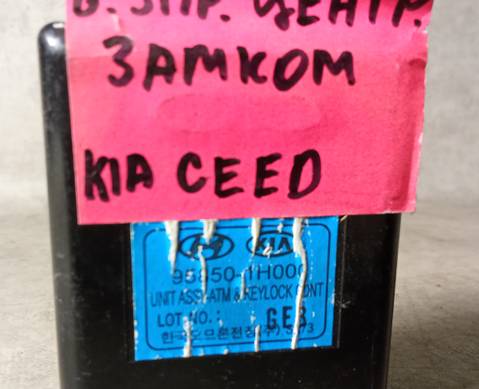 Б. УПР. ЦЕНТР.
ЗАМКОМ
KIA CEED
KIA
95850-1H000
UNIT ASSY-ATM & KEYLOCK CONT
LOT NO.: GE3
한국오므론전장(주) 5073